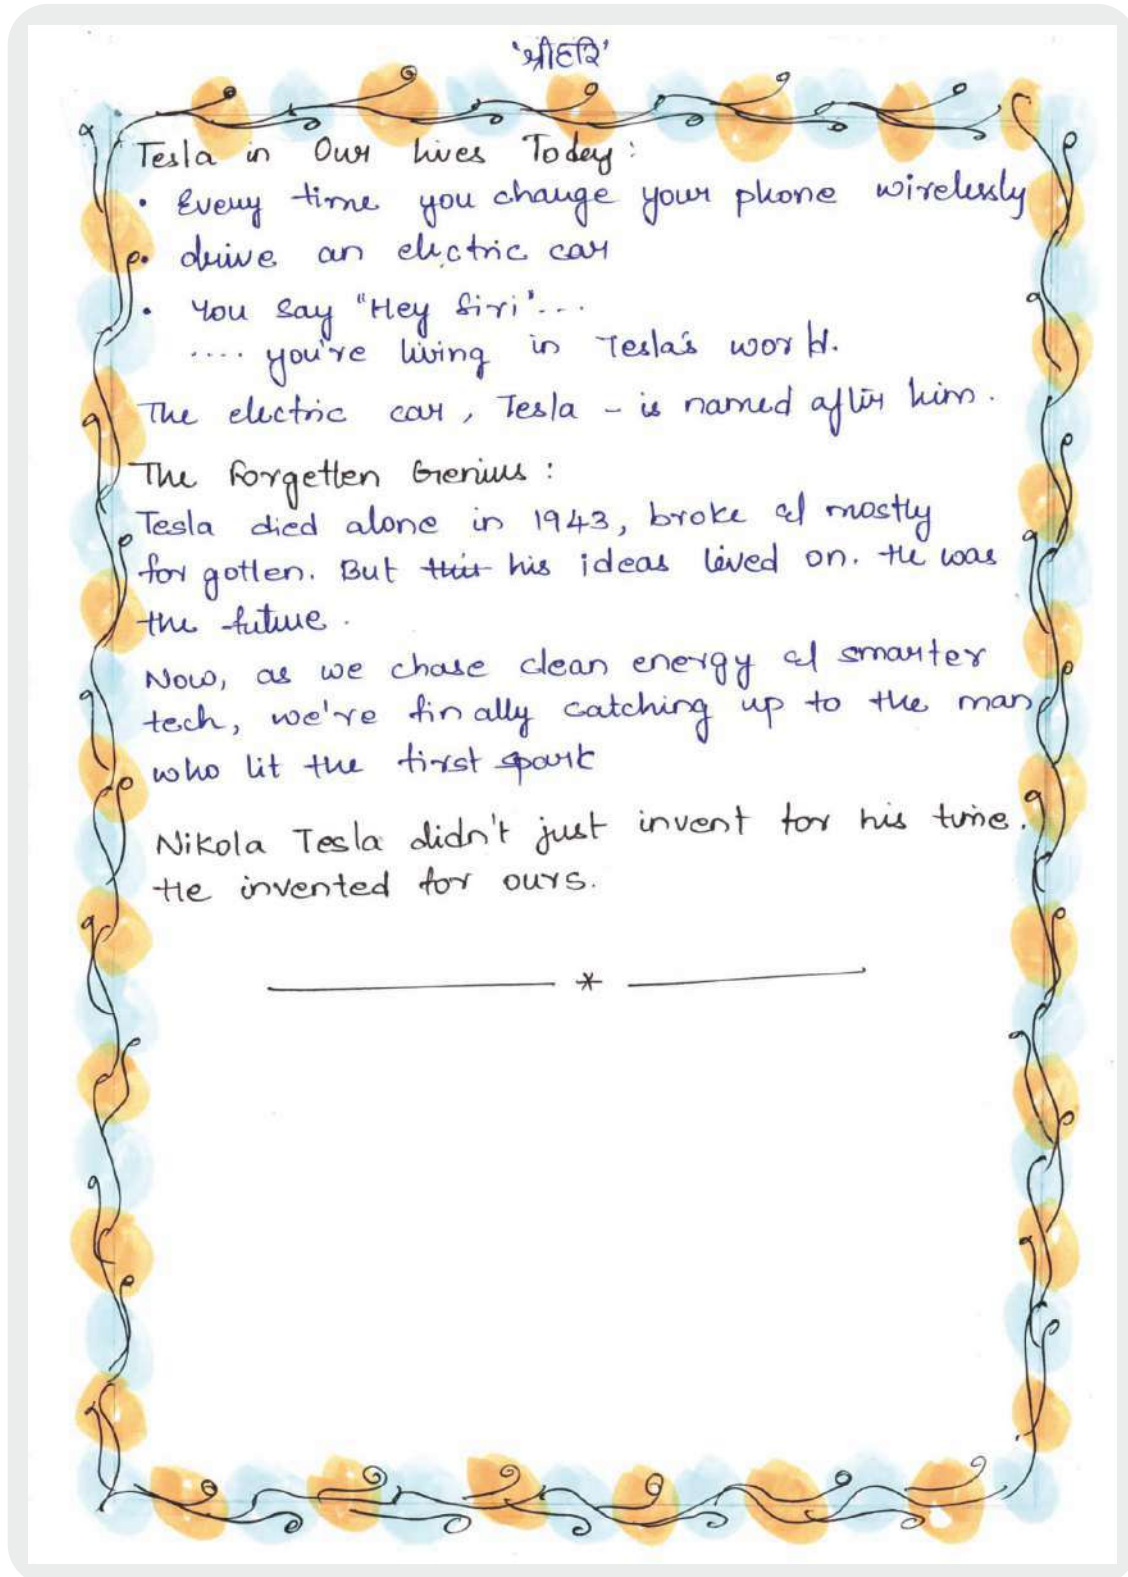 'श्रीहरि'
Tesla in Our Lives Today:
• Every time you charge your phone wirelessly
• drive an electric car
• You say "Hey Siri"...
.... you're living in Tesla's world.
The electric car, Tesla - is named after him.
The Forgetten Genius:
Tesla died alone in 1943, broke & mostly
forgotten. But this his ideas lived on. He was
the future.
Now, as we chase clean energy & smarter
tech, we're finally catching up to the man
who lit the first spark
Nikola Tesla didn't just invent for his time.
He invented for ours.
*